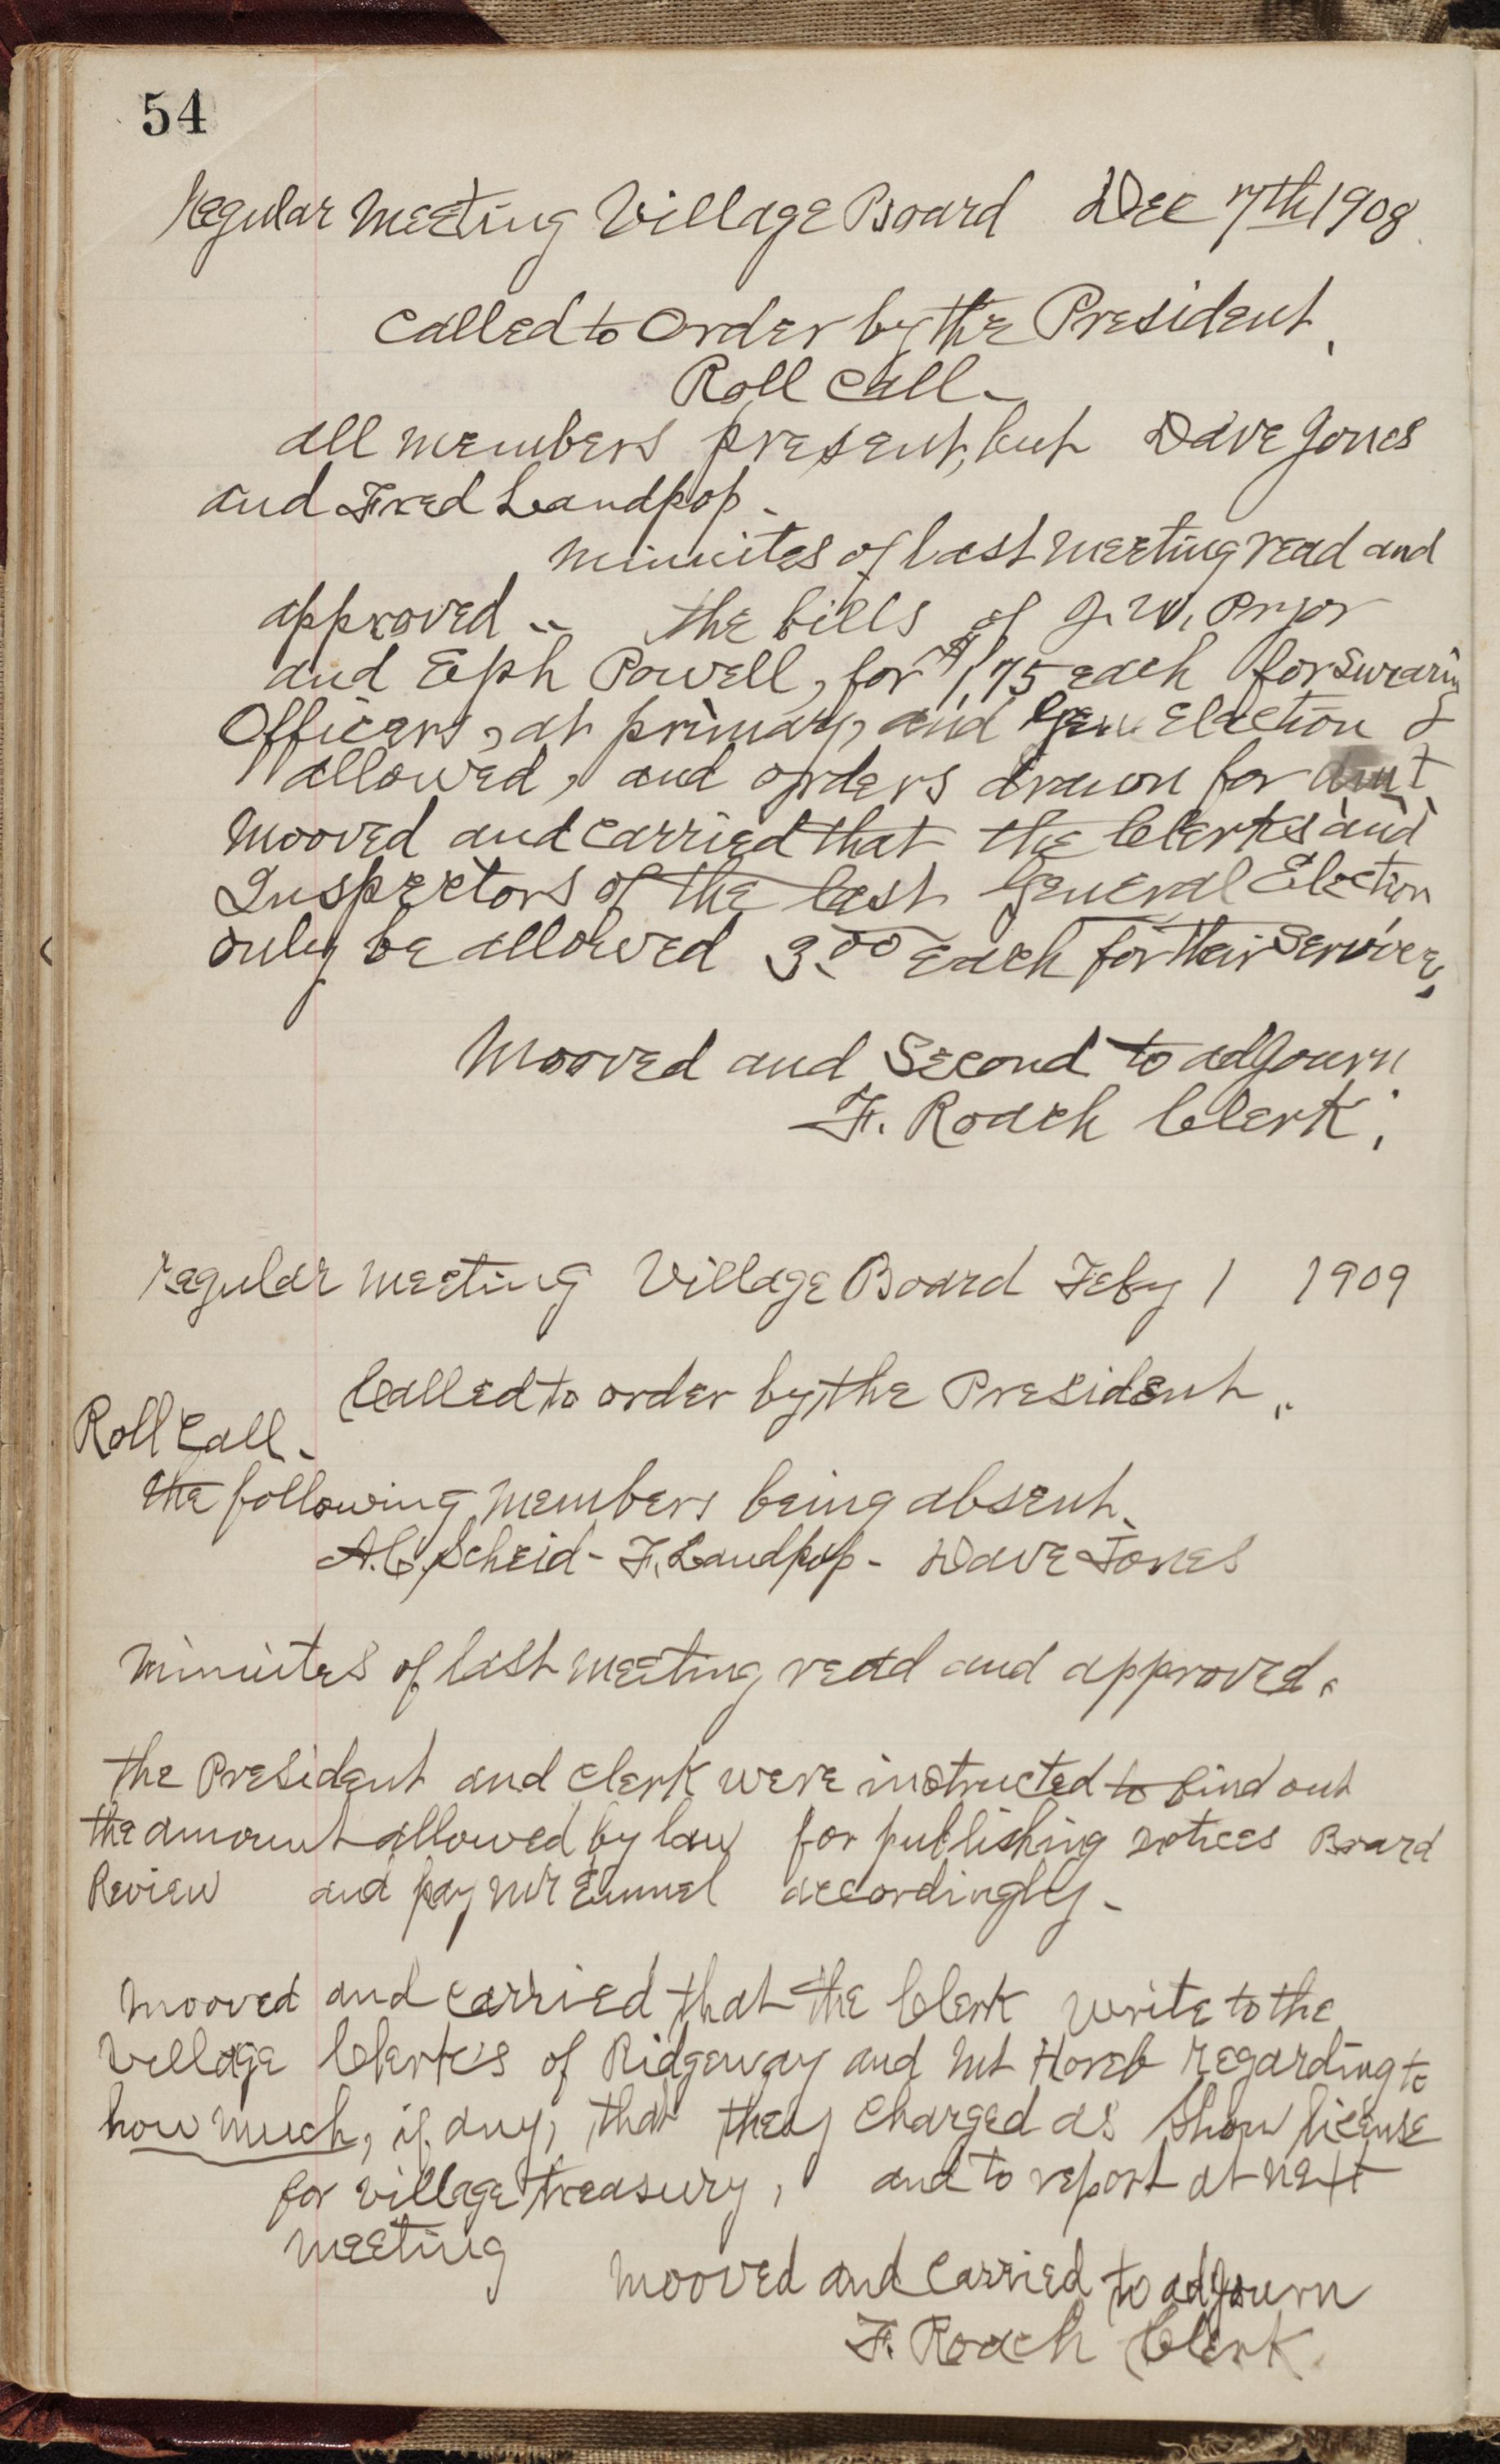 54
Regular Meeting Village Board Dec 7th 1908
Called to Order by the President,
Roll Call -
all members present, but Dave Jones
and Fred Landpop -
Minuites of last meeting read and
approved .. the bills of J. W. Pryor
and Eph Powell, for $1.75 each for Swearing
Officers, at primary, and Gen Election &
allowed, and orders drawn for amt
Mooved and Carried that the Clerks and
Inspectors of the last General Election
only be allowed 3.00 each for their Service,
Mooved and Second to adjourn
F. Roach Clerk.
regular meeting Village Board Feby 1 1909
Called to order by the President,
Roll Call -
the following members being absent.
A. C. Scheid - F. Landpop - Dave Jones
Minuites of last meeting read and approved.
the President and Clerk were instructed to find out
the amount allowed by law for publishing notices Board
Review and pay Mr accordingly -
Mooved and Carried that the Clerk write to the
Village Clerk's of Ridgeway and Mt Horeb regarding to
how much, if any, that they charged as Show license
for village treasury, and to report at next
meeting
Mooved and Carried to adjourn
F. Roach Clerk.